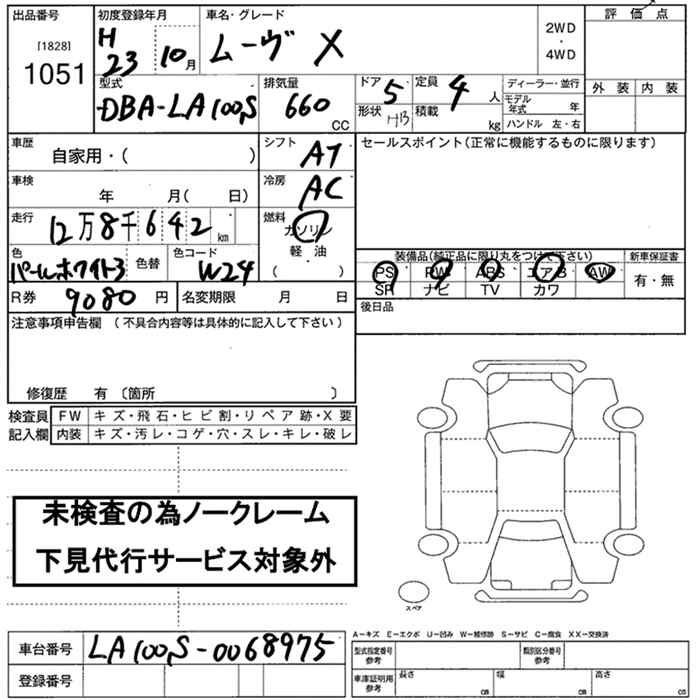 出品番号 初度登録年月 車名・グレード 評価点
[1828]
1051
H
23 10月
ムーヴ X
2WD
・
4WD
型式 排気量 ドア 定員 ディーラー・並行 外装 内装
DBA-LA100S 660 CC
5 4人
モデル年式 年
形状 HB 積載 kg ハンドル 左・右
車歴 シフト セールスポイント(正常に機能するものに限ります)
自家用・( ) AT
車検 冷房
年 月( 日) AC
走行 燃料
12万8千642km ガソリン
軽・油
( )
色 色替 色コード
パールホワイト3 W24
装備品(純正品に限り丸をつけて下さい) 新車保証書
PS PW ABS エアB AW 有・無
SR ナビ TV カワ
R券 9080円 名変期限 月 日 後日品
注意事項申告欄(不具合内容等は具体的に記入して下さい)
修復歴 有 〔箇所 〕
検査員 FW キズ・飛石・ヒビ割・リペア跡・X要
記入欄 内装 キズ・汚レ・コゲ・穴・スレ・キレ・破レ
未検査の為ノークレーム
下見代行サービス対象外
スペア
A−キズ E−エクボ U−凹み W−補修跡 S−サビ C−腐食 XX−交換済
車台番号 LA100S-0068975
型式指定番号 参考 類別区分番号 参考
登録番号
車庫証明用 参考 長さ cm 幅 cm 高さ cm